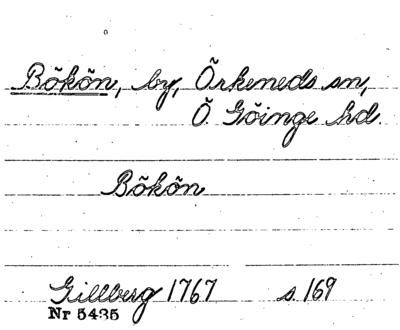 Bökön, by, Örkeneds sn,
Ö. Göinge hd.
Bökön
Gillberg 1767 s. 169
Nr 5435